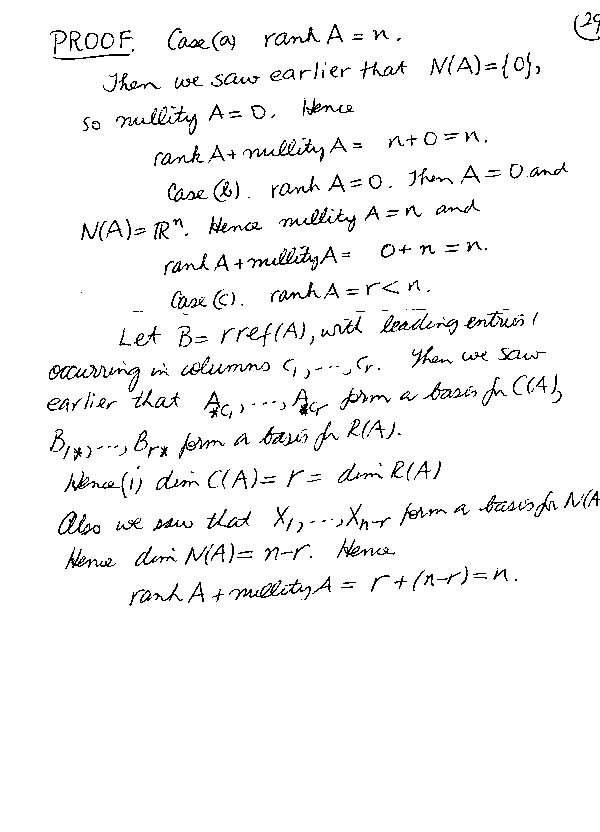 (29
PROOF. Case (a) rank A = n.
Then we saw earlier that N(A) = {0},
so nullity A = 0. Hence
rank A + nullity A = n + 0 = n.
Case (b). rank A = 0. Then A = 0 and
N(A) = ℝⁿ. Hence nullity A = n and
rank A + nullity A = 0 + n = n.
Case (c). rank A = r < n.
Let B = rref(A), with leading entries 1
occurring in columns c₁, ..., cᵣ. Then we saw
earlier that A_{*c₁}, ..., A_{*cᵣ} form a basis for C(A),
B_{1*}, ..., B_{r*} form a basis for R(A).
Hence (i) dim C(A) = r = dim R(A)
Also we saw that X₁, ..., X_{n-r} form a basis for N(A
Hence dim N(A) = n-r. Hence
rank A + nullity A = r + (n-r) = n.